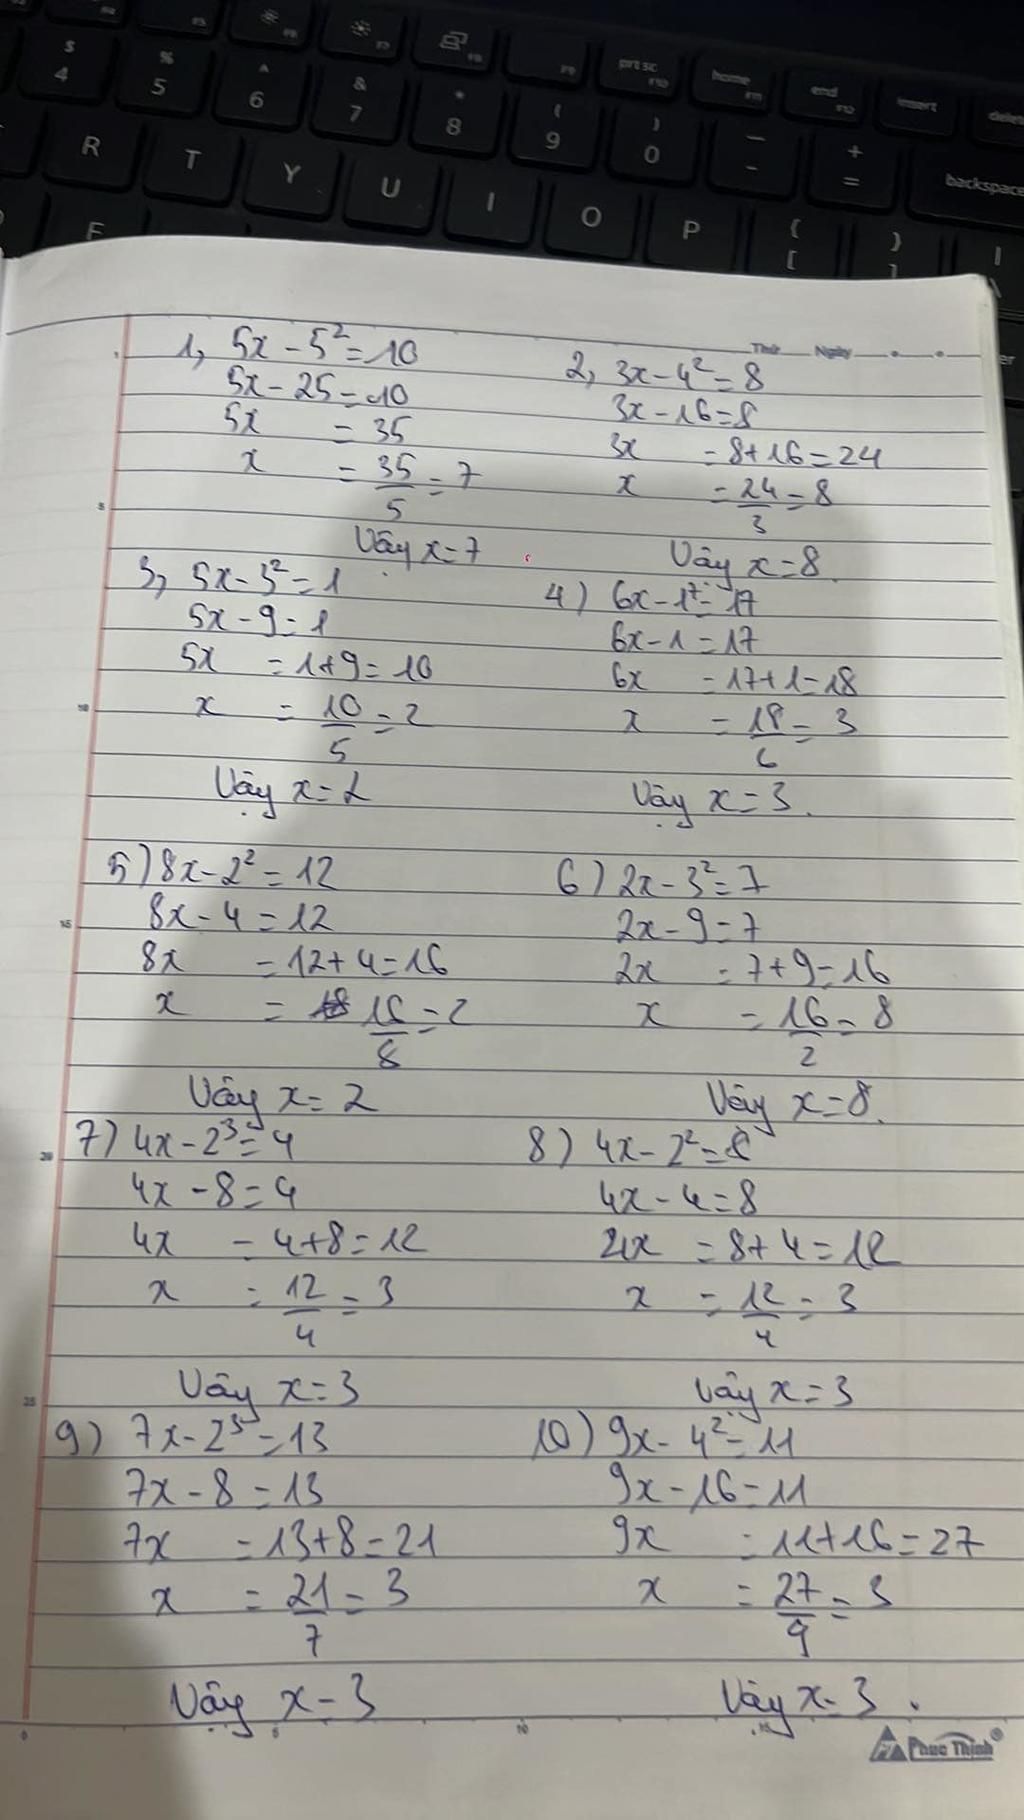 $ 4 % 5 ^ 6 & 7 * 8 ( 9 ) 0 — - + =
prt sc home end insert
backspace
R T Y U I O P { [ } ]
Thứ Ngày
1, 5x - 5² = 10
5x - 25 = 10
5x = 35
x = 35/5 = 7
Vậy x = 7
2, 3x - 4² = 8
3x - 16 = 8
3x = 8 + 16 = 24
x = 24/3 = 8
Vậy x = 8.
3, 5x - 3² = 1
5x - 9 = 1
5x = 1 + 9 = 10
x = 10/5 = 2
Vậy x = 2
4) 6x - 1⁷ = 17
6x - 1 = 17
6x = 17 + 1 = 18
x = 18/6 = 3
Vậy x = 3.
5) 8x - 2² = 12
8x - 4 = 12
8x = 12 + 4 = 16
x = 16/8 = 2
Vậy x = 2
6) 2x - 3² = 7
2x - 9 = 7
2x = 7 + 9 = 16
x = 16/2 = 8
Vậy x = 8.
7) 4x - 2³ = 4
4x - 8 = 4
4x = 4 + 8 = 12
x = 12/4 = 3
Vậy x = 3
8) 4x - 2² = 8
4x - 4 = 8
4x = 8 + 4 = 12
x = 12/4 = 3
Vậy x = 3
9) 7x - 2³ = 13
7x - 8 = 13
7x = 13 + 8 = 21
x = 21/7 = 3
Vậy x = 3
10) 9x - 4² = 11
9x - 16 = 11
9x = 11 + 16 = 27
x = 27/9 = 3
Vậy x = 3.
Phuc Thinh